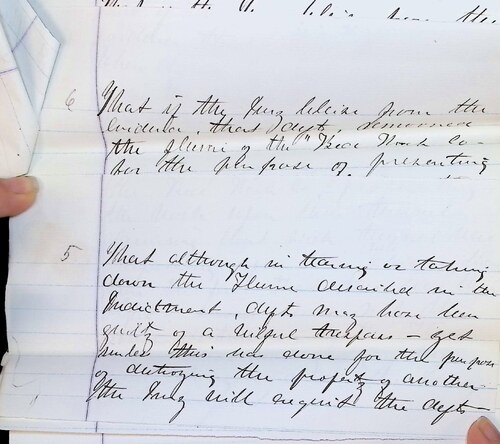 6
That if the Jury believe from the
evidence, that defts,
the flume of the "
for the purpose of presenting
5
That although in tearing or taking
down the Flume described in the
Indictment, defts may have been
guilty of a wilful trespass – yet
unless this was done for the purpose
of destroying the property of another
the Jury will acquit the defts –